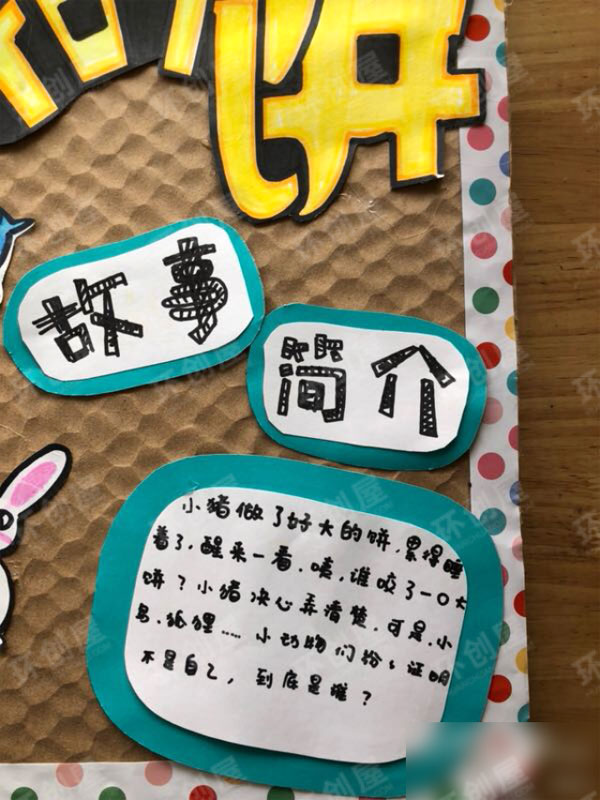 饼
故事
简介
小猪做了好大的饼,累得睡
着了,醒来一看,咦,谁咬了一口大
饼?小猪决心弄清楚,可是,小
鸟、狐狸……小动物们纷々证明
不是自己,到底是谁?
环创屋